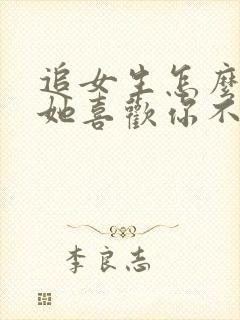 追女生怎麼
她喜歡你不
李良志